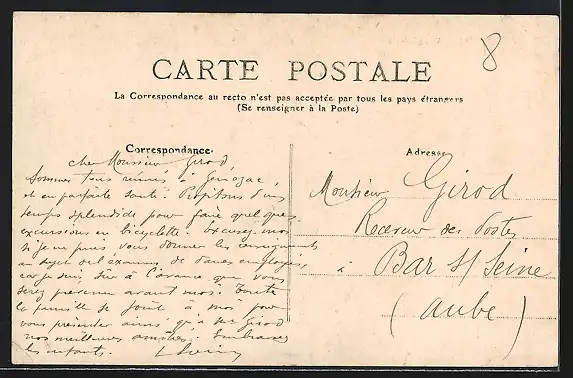 8
CARTE POSTALE
La Correspondance au recto n'est pas acceptée par tous les pays étrangers
(Se renseigner à la Poste)
Correspondance
Adresse
cher Monsieur Girod
Sommes tous réunis à Gémozac,
et en parfaite santé. Profitons d'un
temps splendide pour faire quelques
excursions en bicyclette. Excusez-moi
si je ne puis vous donner les renseignements
au sujet de l'examen de dames employées,
car je suis sûr à l'avance que vous
serez prévenu avant moi. Toute
la famille se joint à moi pour
vous présenter ainsi qu'à Me Girod
nos meilleures amitiés. Embrassez
les enfants.
Monsieur Girod
Receveur des Postes
à Bar s/ Seine
(Aube)